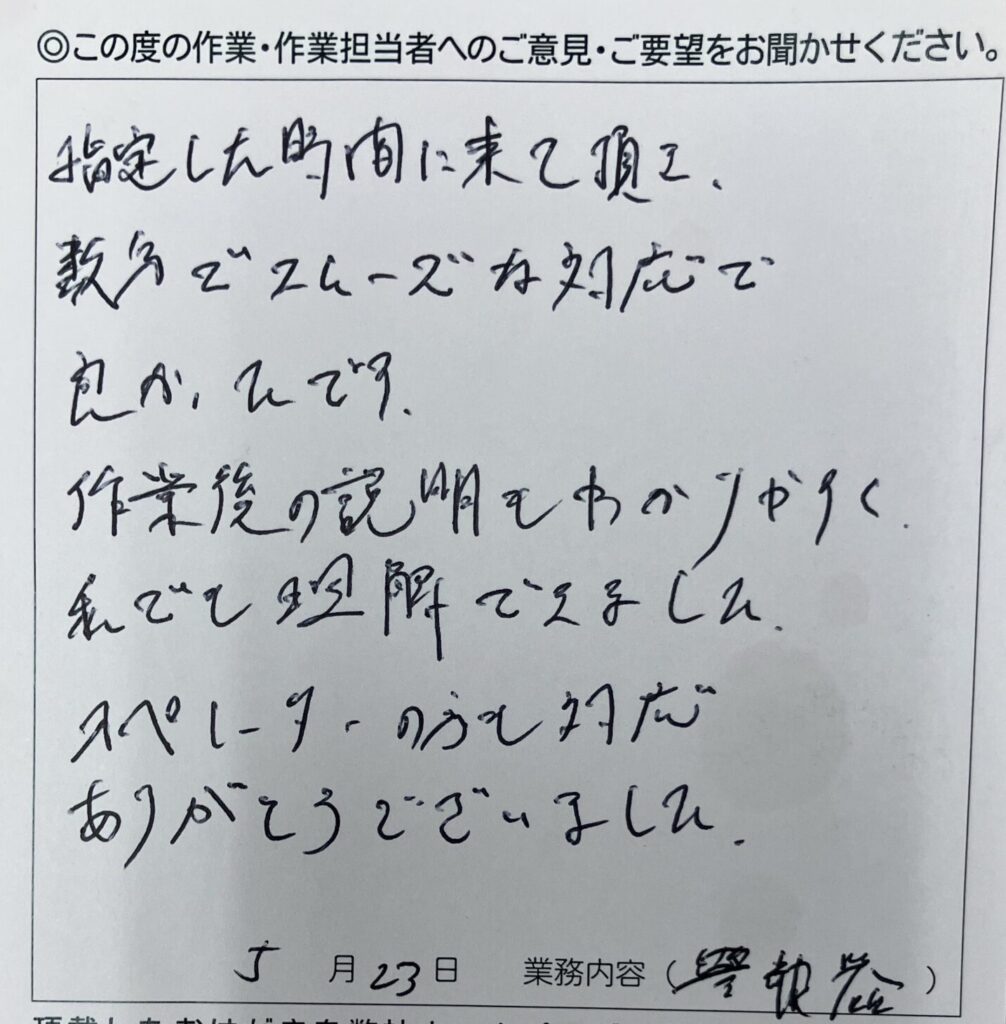 ◎この度の作業・作業担当者へのご意見・ご要望をお聞かせください。
指定した時間に来て頂え、
数分でスムーズな対応で
良かったです。
作業後の説明もわかりやすく、
私でも理解できました。
オペレーターの方も対応
ありがとうございました。
5月23日 業務内容（　）